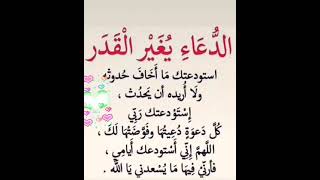 الدُّعَاءِ يُغَيْر الْقَدَر
استودعتك مَا أَخَافَ حُدوثَه
ولَا أُريده أَن يَحدُث ،
إِسْتَوْدعتك رَبِّي
كُلَّ دَعوَةٍ دُعِيتُهَا وفَوَّضتُهَا لَكَ ،
اللَّهمَّ إِنِّي أَسْتودعك أَيَامِي ،
فأَرِنِّيْ فِيهَا مَا يُسْعدنِي يَا اللَّه .